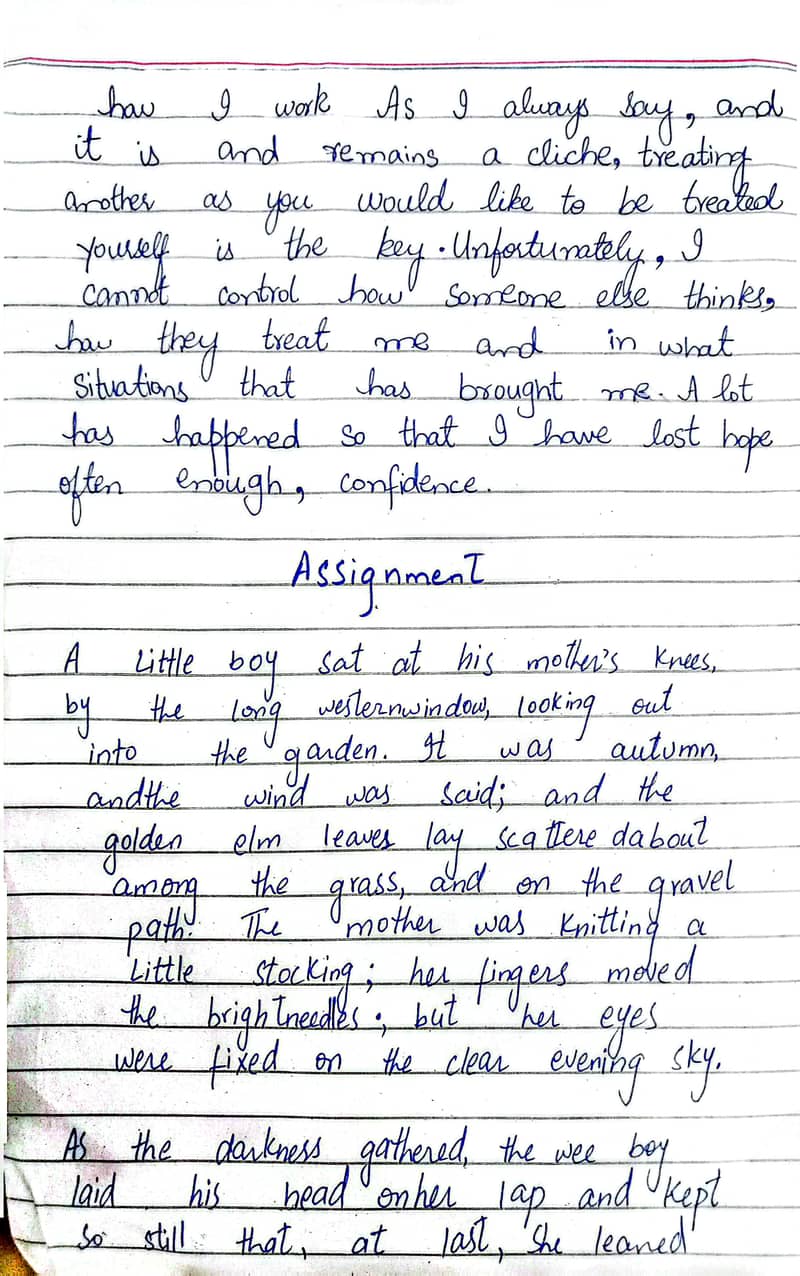 how I work As I always say, and
it is and remains a cliche, treating
another as you would like to be treated
yourself is the key. Unfortunately, I
cannot control how someone else thinks,
how they treat me and in what
situations that has brought me. A lot
has happened so that I have lost hope
often enough, confidence.
Assignment
A little boy sat at his mother's knees,
by the long westernwindow, looking out
into the garden. It was autumn,
andthe wind was said; and the
golden elm leaves lay scattere dabout
among the grass, and on the gravel
path. The mother was knitting a
little stocking; her fingers moved
the brightneedles; but her eyes
were fixed on the clear evening sky.
As the darkness gathered, the wee boy
laid his head onher lap and kept
so still that, at last, she leaned